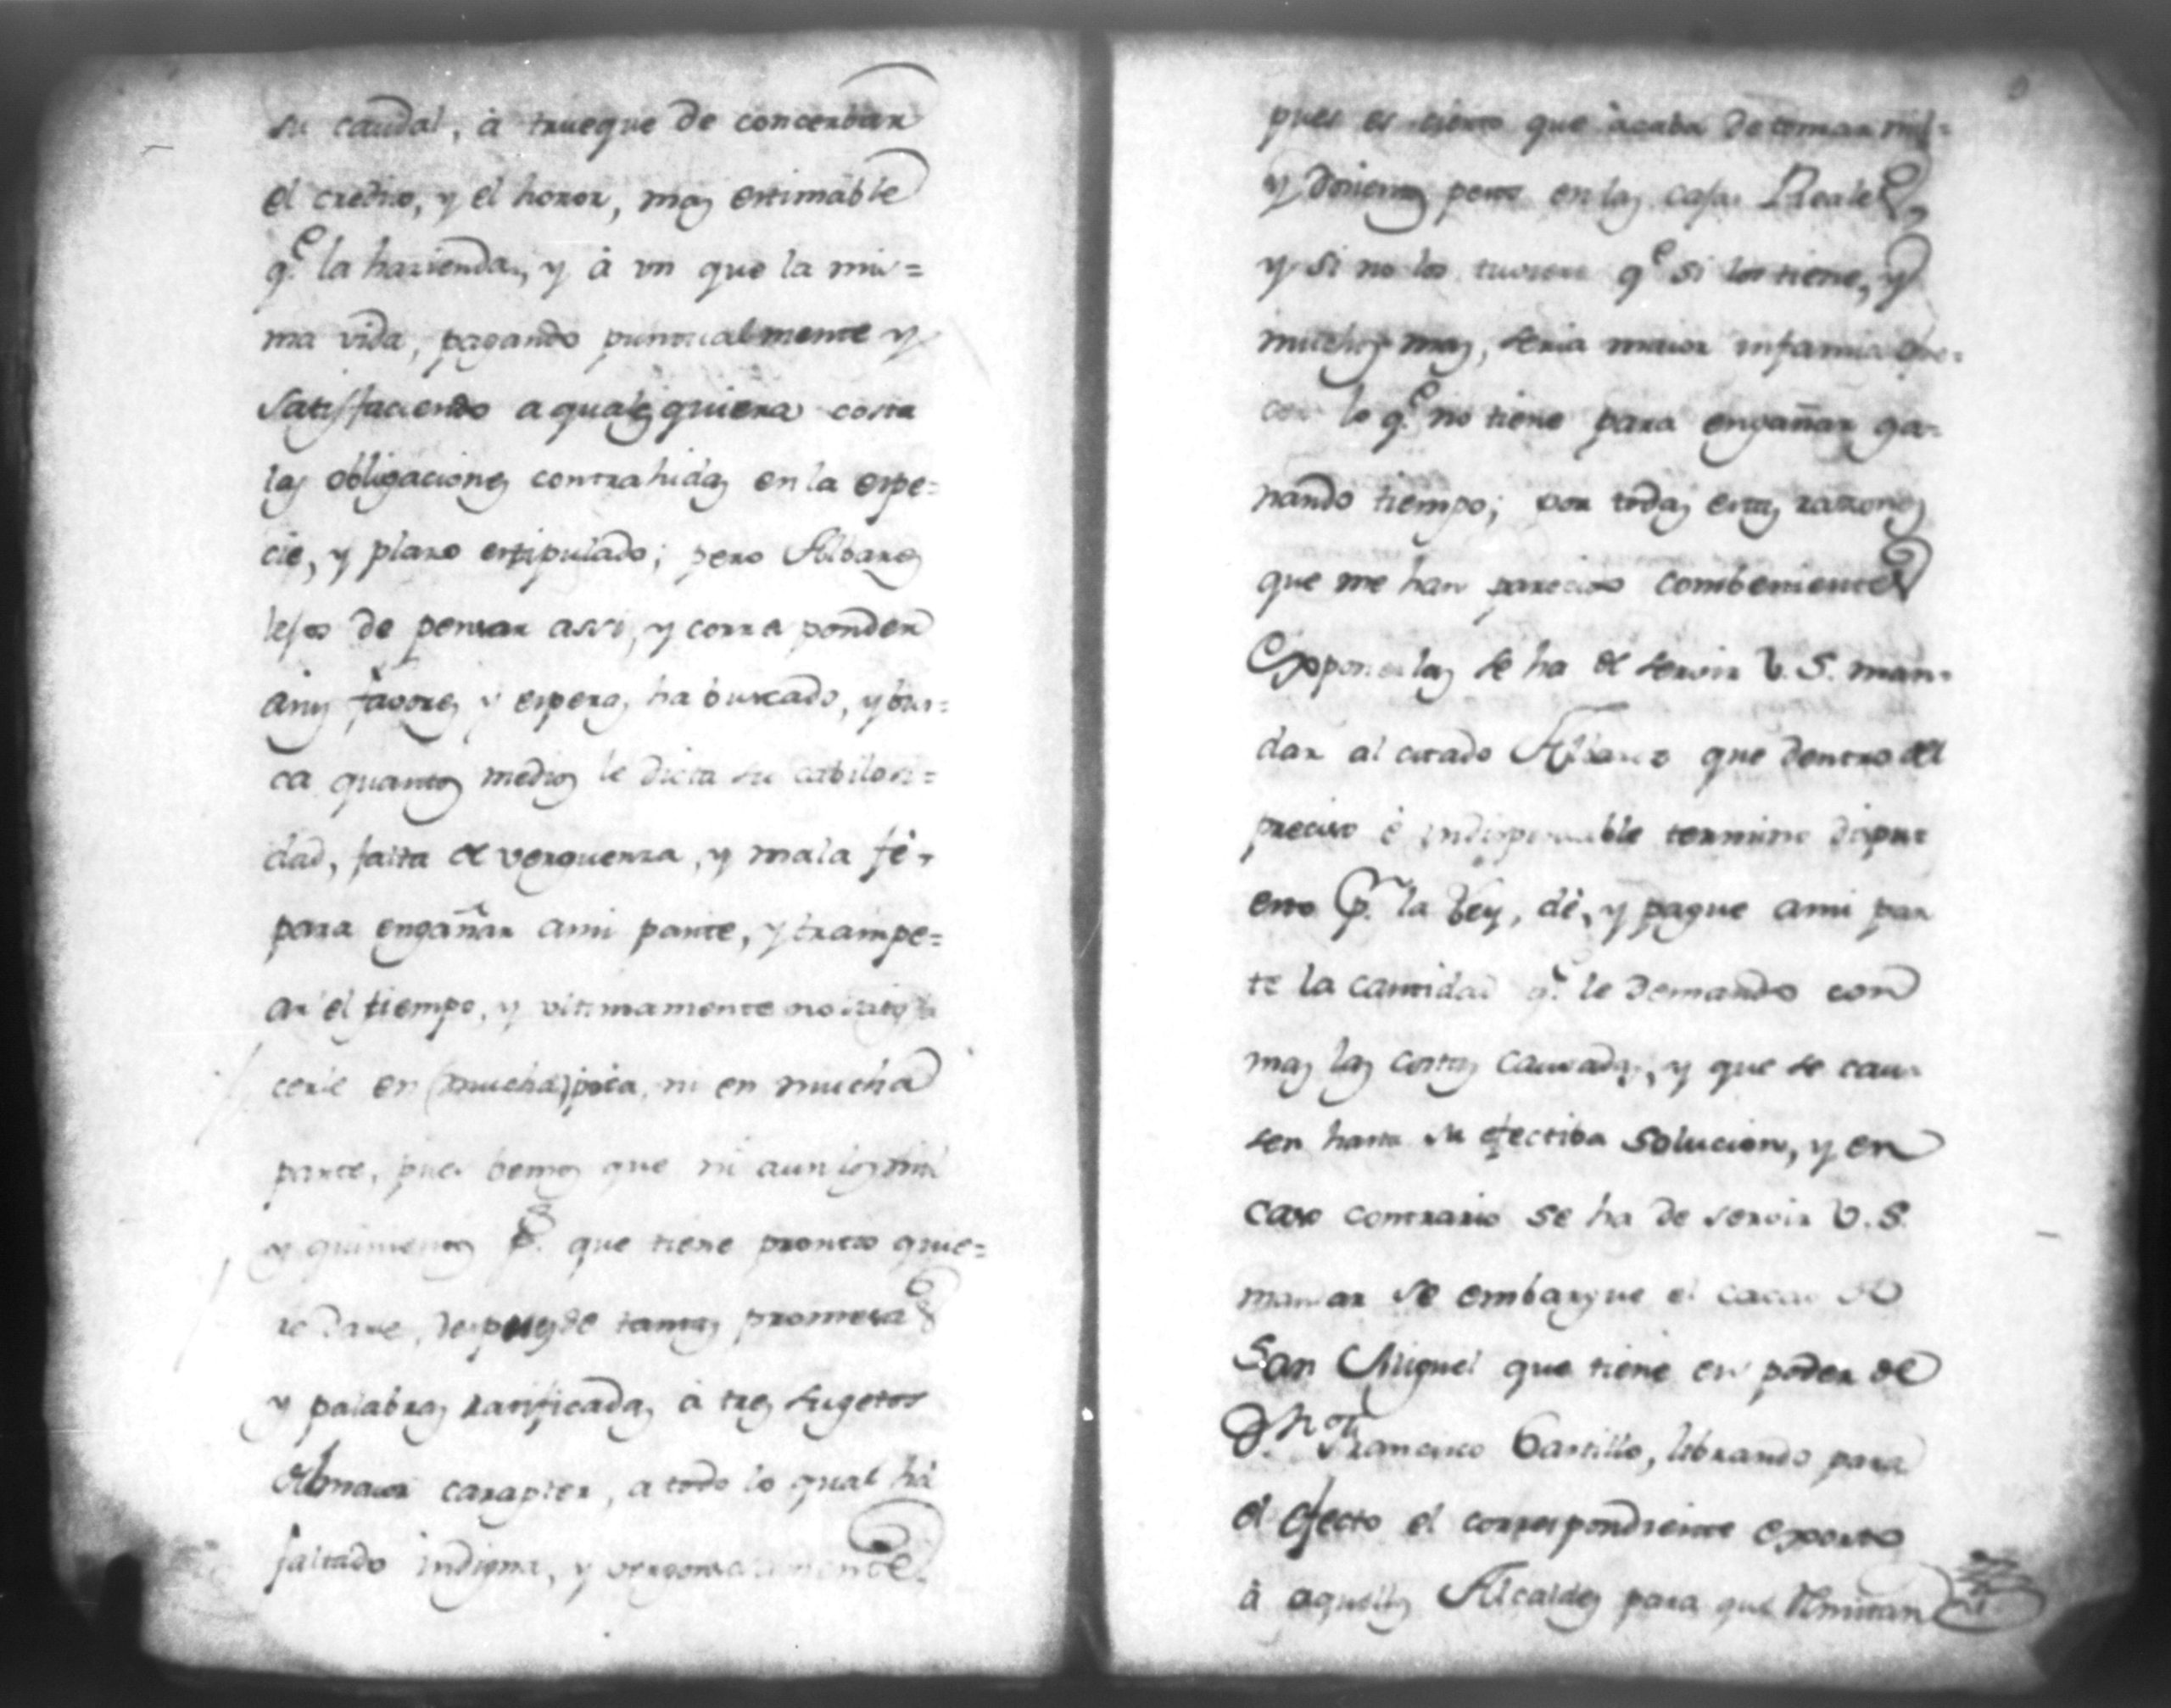 su caudal, à trueque de concerbar
el credito, y el honor, mas estimable
q.e la hazienda, y à un que la mis=
ma vida, pagando puntualmente y
satisfaciendo a qualesquiera costa
las obligaciones contrahidas en la espe=
cie, y plazo estipulado; pero Albares
lejos de pensar assi, y corresponder
à mis favores y esperas, ha buscado, y bus=
ca quantos medios le dicta su cabilosi=
dad, falta de verguenza, y mala fé,
para engañar ami parte, y trampe=
ar el tiempo, y ultimamente no satisfa
cerle en (mucha) poca, ni en mucha
parte, pues bemos que ni aun los mil
y quinientos p.s que tiene pronto quie=
re darle, despues de tantas promesas
y palabras ratificadas à tres sugetos
del maior carapter, a todo lo qual há
faltado indigna, y vergonsosamente.
pues es cierto que acaba de tomar mil=
y pesos en las cajas Reales,
y si no los tuviera q.e si los tiene, y
muchos mas, seria maior infamia
lo q.e no tiene para engañar ga=
nando tiempo; por todas estas razones
que me han parecido combenientes
exponerlas se ha de servir V.S. man=
dar al citado Albarez que dentro del
preciso é indispensable termino dispu
esto p.r la Ley, dé, y pague ami par
te la cantidad q.e le demando con
mas las costas causadas, y que se cau=
sen hasta su efectiba solucion, y en
caso contrario se ha de servir V.S.
mandar se embargue el cacao de
San Miguel que tiene en poder de
D.n Francisco Castillo, librando para
el efecto el correspondiente exorto
à aquellos Alcaldes para que remitan